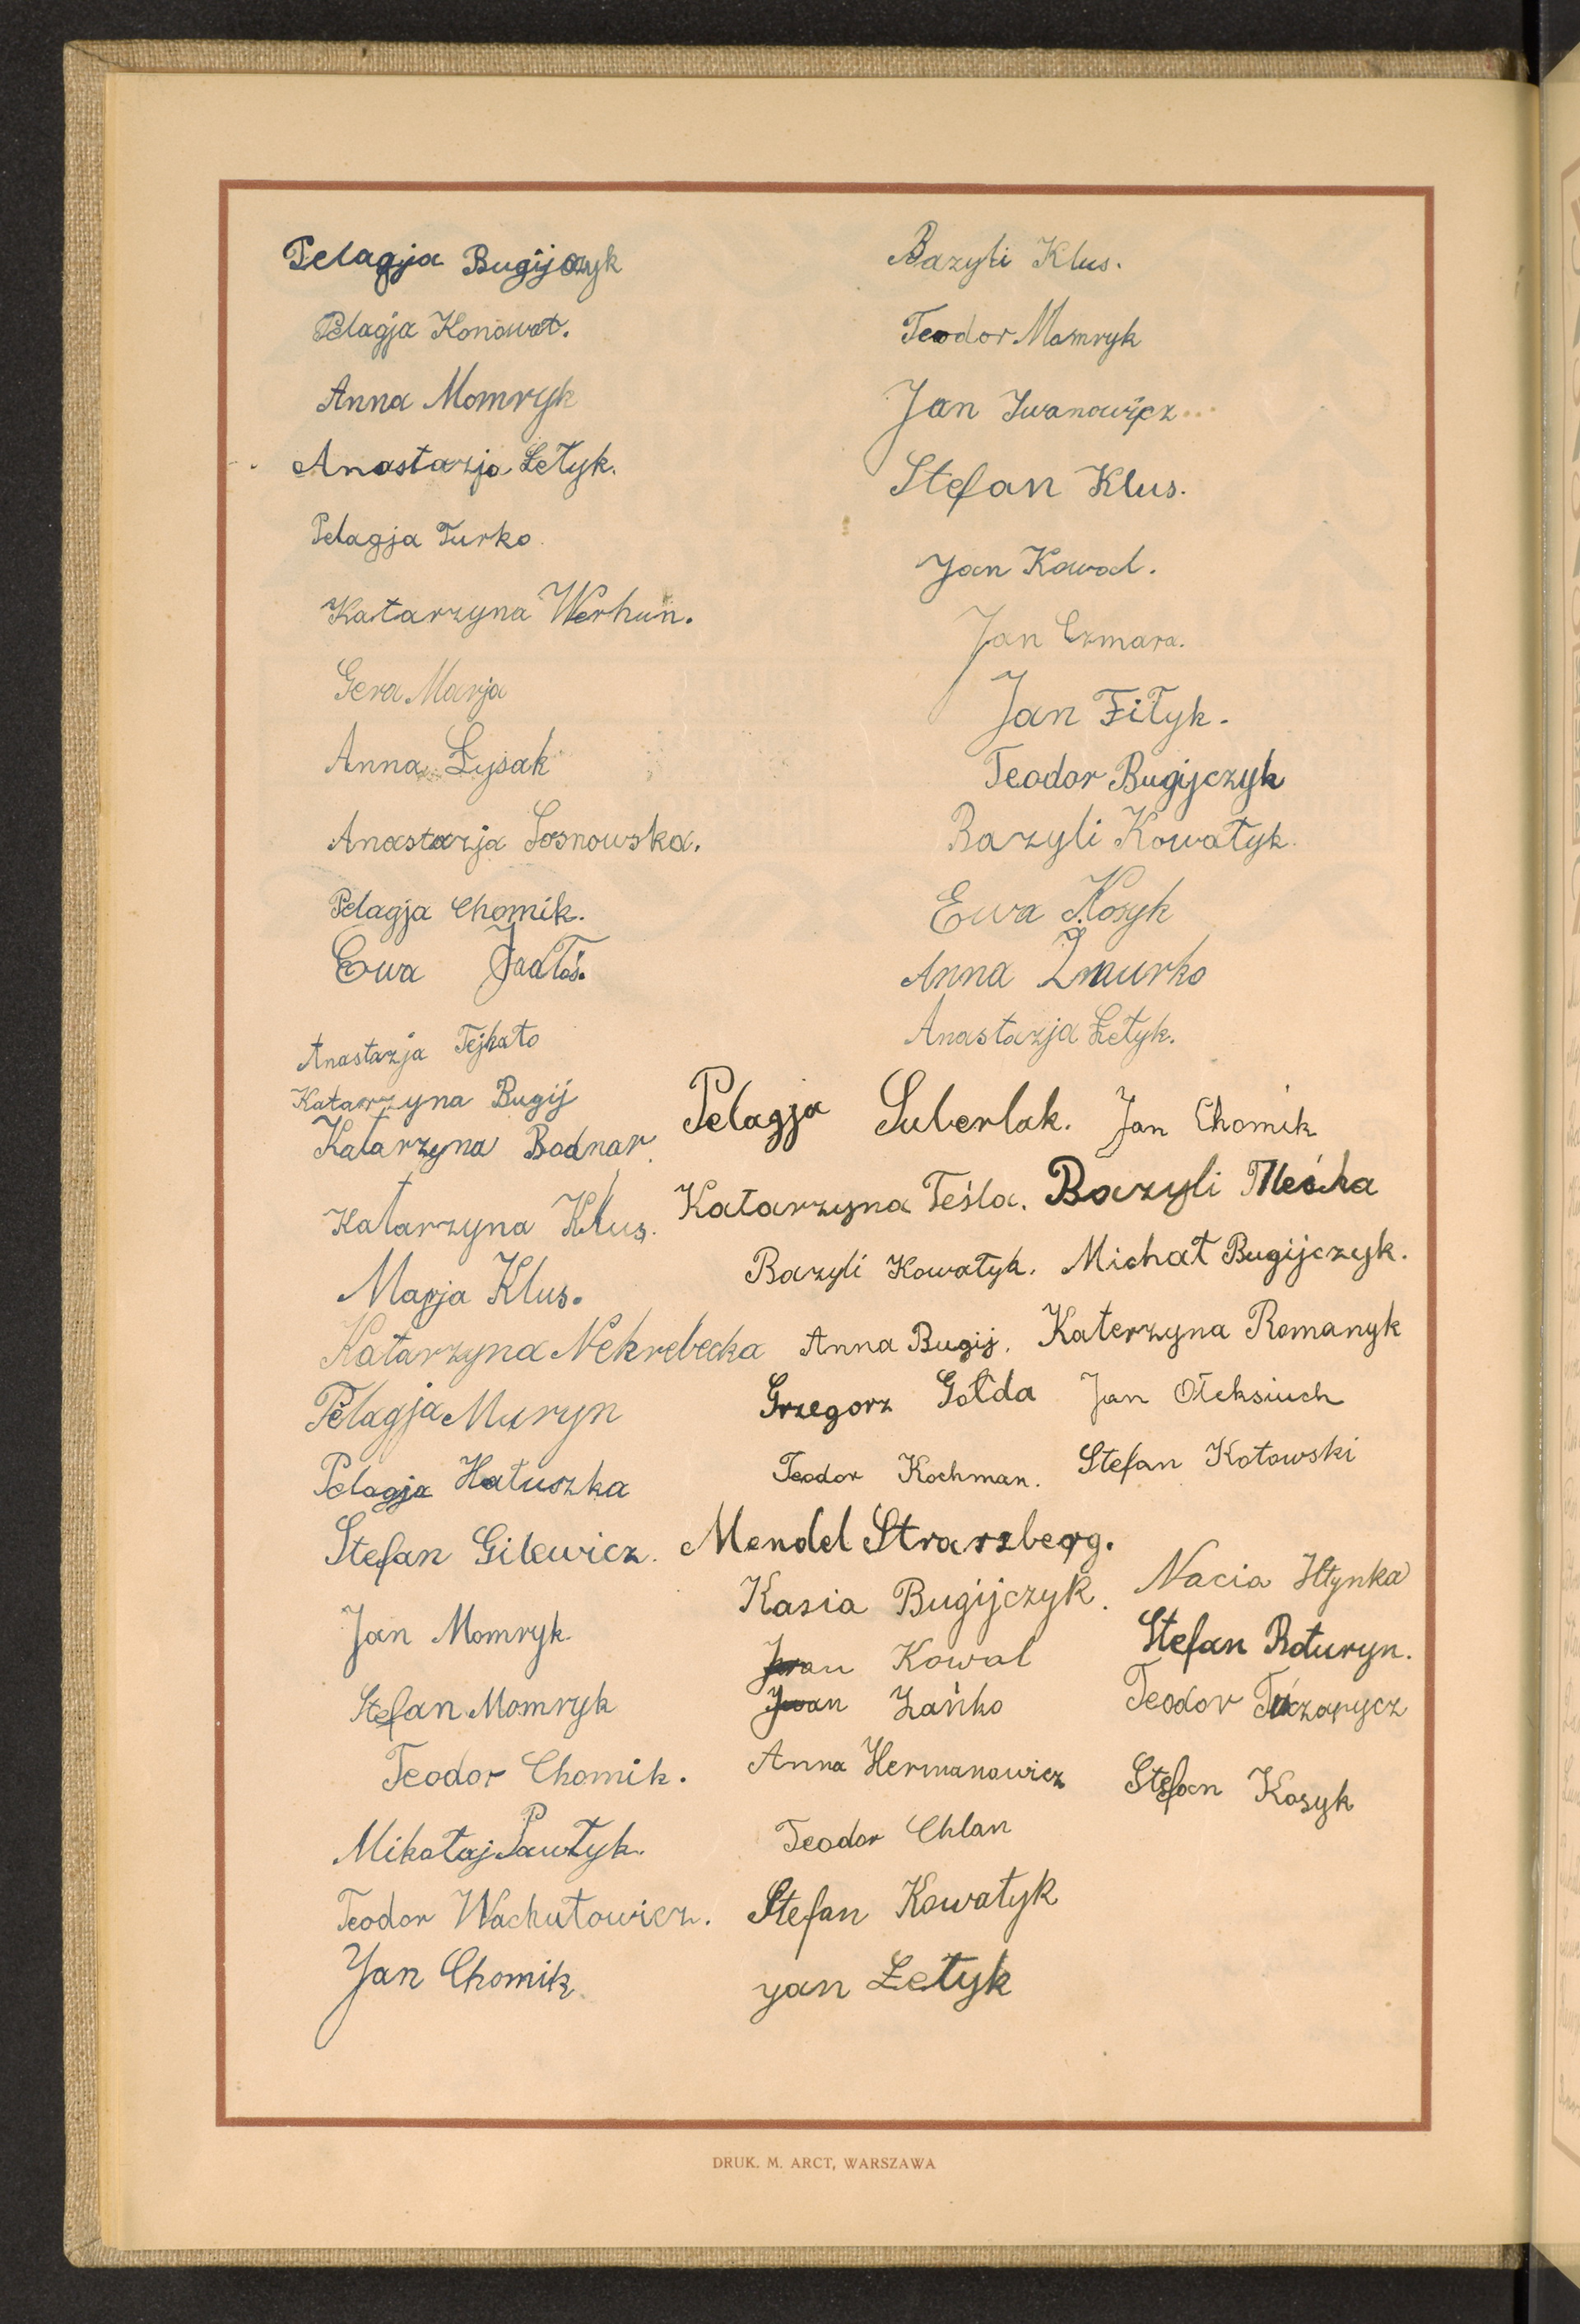 Pelagja Bugijczyk
Pelagja Konował.
Anna Momryk
Anastazja Łetyk.
Pelagja Turko
Katarzyna Werhun.
Gera Marja
Anna Łysak
Anastazja Sosnowska.
Pelagja Chomik.
Ewa Jadłoś.
Anastazja Tejkało
Katarzyna Bugij
Katarzyna Bodnar.
Katarzyna Klus.
Marja Klus.
Katarzyna Nekrebecka
Pelagja Muryn
Pelagja Hałuszka
Stefan Gilewicz.
Jan Momryk
Stefan Momryk
Teodor Chomik.
Mikołaj Pawłyk.
Teodor Wachutowicz.
Jan Chomik
Bazyli Klus.
Teodor Momryk
Jan Iwanowicz
Stefan Klus.
Jan Kowal.
Jan Czmara.
Jan Fityk.
Teodor Bugijczyk
Bazyli Kowałyk.
Ewa Kosyk
Anna Żmurko
Anastazja Łetyk.
Pelagja Suberlak. Jan Chomik
Katarzyna Teśla. Bazyli
Bazyli Kowałyk. Michał Bugijczyk.
Anna Bugij. Katerzyna Romanyk
Grzegorz Gołda Jan Ołeksiuch
Teodor Kochman. Stefan Kotowski
Mendel Strarzberg.
Kasia Bugijczyk. Nacia Hłynka
Kowal Stefan Roturyn.
Zańko Teodor
Anna Hermanowicz Stefan Kosyk
Teodor Chlan
Stefan Kowałyk
Jan Łetyk
DRUK. M. ARCT, WARSZAWA